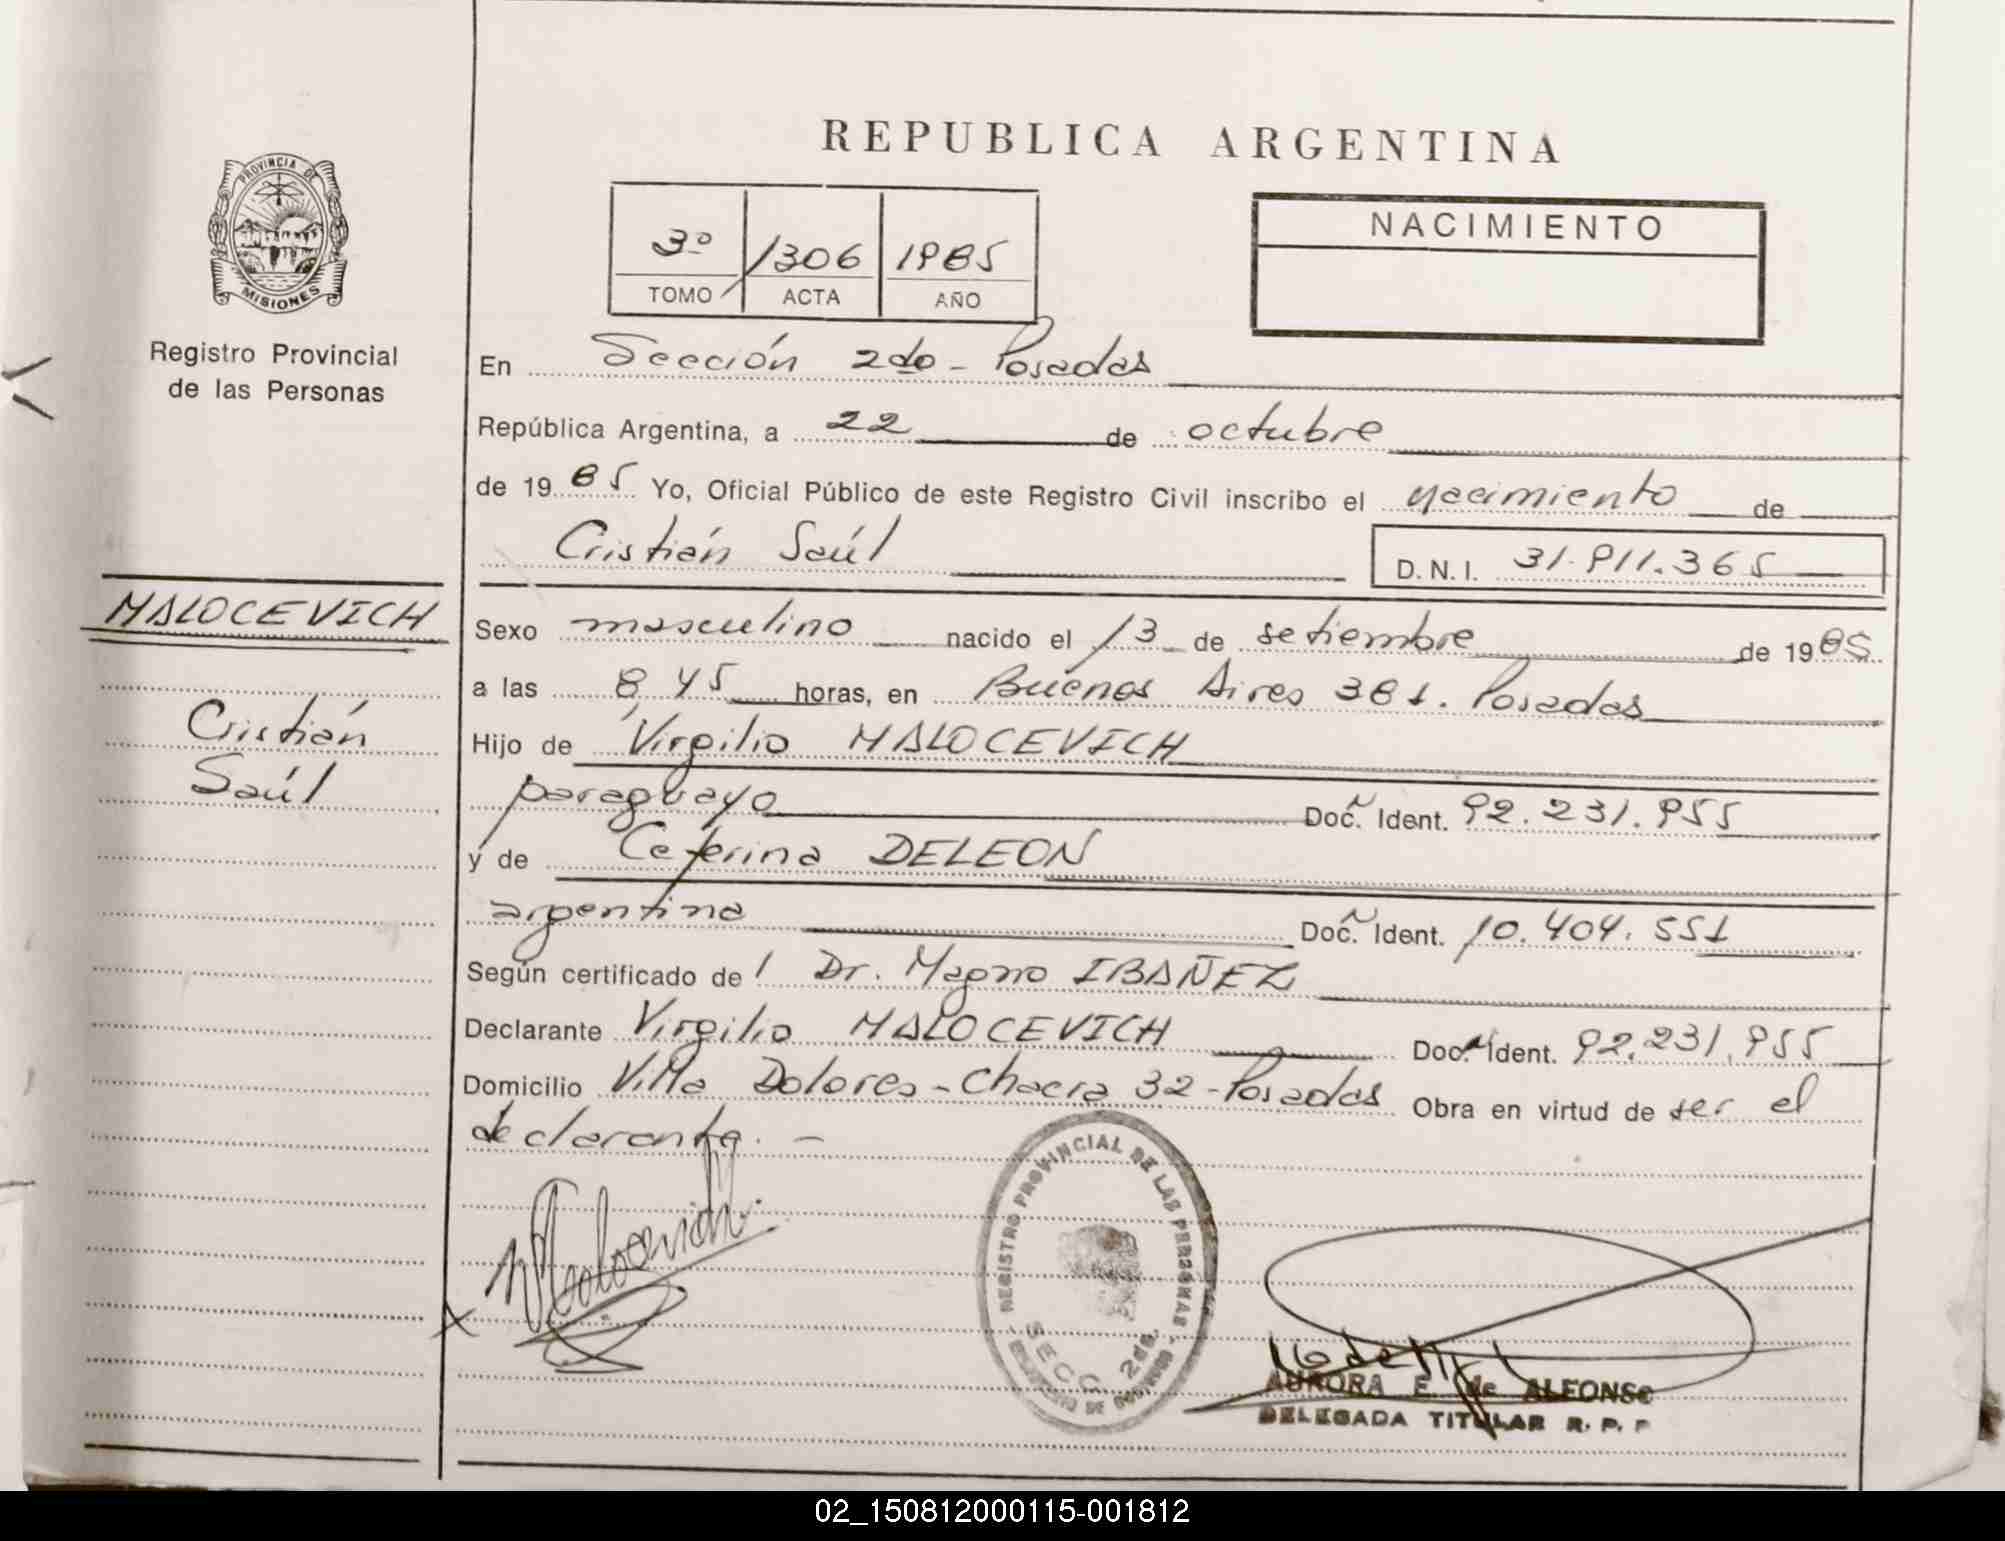 REPUBLICA ARGENTINA
PROVINCIA DE
MISIONES
Registro Provincial
de las Personas
3º 1306 1985
TOMO ACTA AÑO
NACIMIENTO
En Sección 2da - Posadas
República Argentina, a 22 de octubre
de 1985 Yo, Oficial Público de este Registro Civil inscribo el nacimiento de
Cristián Saúl
D.N.I. 31.911.365
MALOCEVICH
Cristián
Saúl
Sexo masculino nacido el 13 de setiembre de 1985
a las 8,45 horas, en Buenos Aires 381. Posadas
Hijo de Virgilio MALOCEVICH
paraguayo Doc. Ident. 92.231.955
y de Ceferina DELEON
argentina Doc. Ident. 10.404.551
Según certificado de l Dr. Magno IBAÑEZ
Declarante Virgilio MALOCEVICH Doc. Ident. 92.231.955
Domicilio Villa Dolores - Chacra 32 - Posadas Obra en virtud de ser el
declarante. -
VMalocevich
REGISTRO PROVINCIAL DE LAS PERSONAS
SECC. 2da.
AURORA E. de ALFONSO
DELEGADA TITULAR R. P. P
02_150812000115-001812